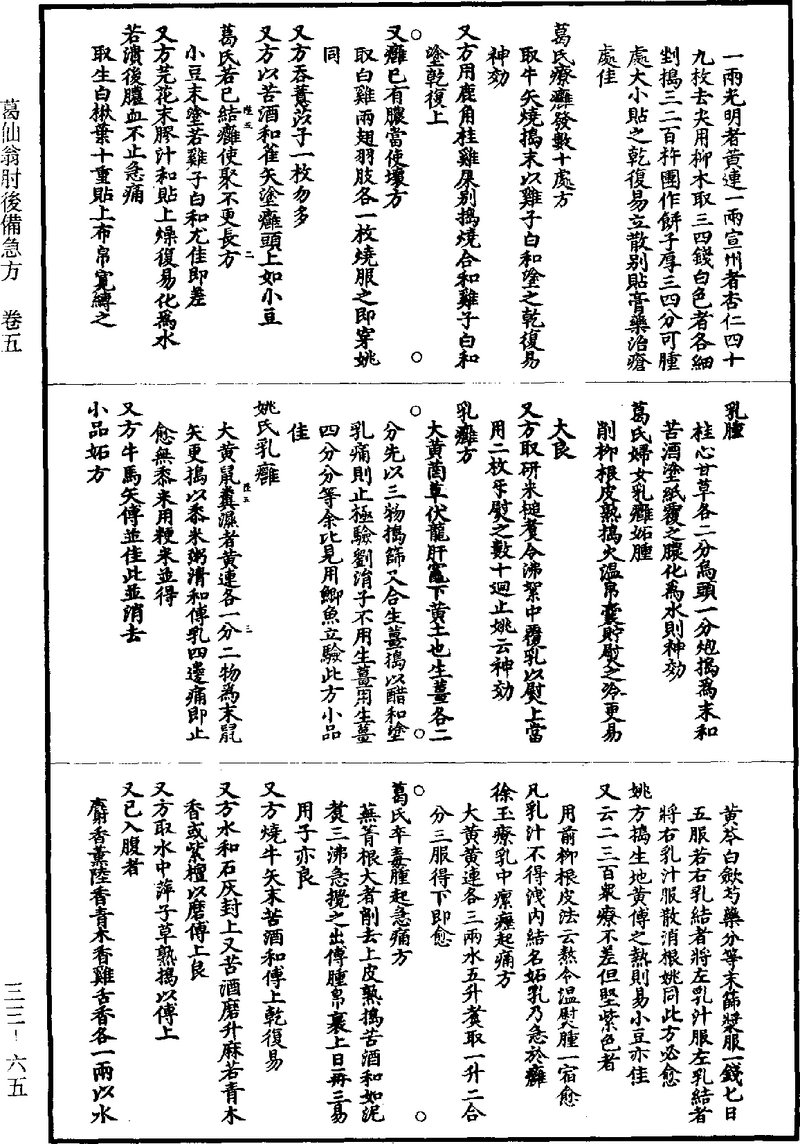 一兩光明者黃連一兩宣州者杏仁四十
九枚去尖用柳木取三四錢白色者各細
剉搗三二百杵團作餅子厚三四分可腫
處大小貼之乾復易立散別貼膏藥治瘡
處佳
葛氏療癰發數十處方
取牛矢燒搗末以雞子白和塗之乾復易
神効
又方用鹿角桂雞屎別搗燒合和雞子白和
塗乾復上
又癰已有膿當使壞方
取白雞兩翅羽肢各一枚燒服之即穿姚
同
又方吞薏苡子一枚勿多
又方以苦酒和雀矢塗癰頭上如小豆
葛氏若已結癰使聚不更長方
小豆末塗若雞子白和尤佳即差
又方芫花末膠汁和貼上燥復易化為水
若潰後膿血不止急痛
取生白楸葉十重貼上布帛寬縛之
乳腫
桂心甘草各二分烏頭一分炮搗為末和
苦酒塗紙覆之膿化為水則神効
葛氏婦女乳癰妬腫
削柳根皮熟搗火溫帛囊貯熨之冷更易
大良
又方取研米槌煮令沸絮中覆乳以熨上當
用二枚牙熨之數十迴止姚云神効
乳癰方
大黃䓛草伏龍肝竈下黃土也生薑各二
分先以三物搗篩又合生薑搗以醋和塗
乳痛則止極驗劉涓子不用生薑用生薑
四分分等余比見用鯽魚立驗此方小品
佳
姚氏乳癰
大黃鼠糞濕者黃連各一分二物為末鼠
矢更搗以黍米粥清和傅乳四邊痛即止
愈無黍米用粳米並得
又方牛馬矢傅並佳此並消去
小品妬方
黃芩白歛芍藥分等末篩漿服一錢匕日
五服若右乳結者將左乳汁服左乳結者
將右乳汁服散消根姚同此方必愈
姚方搗生地黃傅之熱則易小豆亦佳
又云二三百眾療不差但堅紫色者
用前柳根皮法云熬令溫熨腫一宿愈
凡乳汁不得洩內結名妬乳乃急於癰
徐玉療乳中瘰癧起痛方
大黃黃連各三兩水五升煮取一升二合
分三服得下即愈
葛氏卒毒腫起急痛方
蕪菁根大者削去上皮熟搗苦酒和如泥
煮三沸急攪之出傅腫帛裹上日再三易
用子亦良
又方燒牛矢末苦酒和傅上乾復易
又方水和石灰封上又苦酒磨升麻若青木
香或紫檀以磨傅上良
又方取水中萍子草熟搗以傅上
又已入腹者
麝香薰陸香青木香雞舌香各一兩以水
葛仙翁肘後備急方　卷五
三三－六五